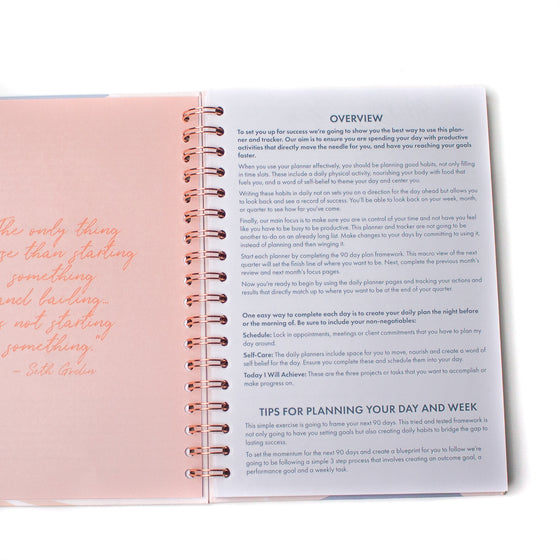 he only thing
se than starting
something
and bailing...
s not starting
something.
- Seth Godin
OVERVIEW
To set you up for success we're going to show you the best way to use this plan-
ner and tracker. Our aim is to ensure you are spending your day with productive
activities that directly move the needle for you, and have you reaching your goals
faster.
When you use your planner effectively, you should be planning good habits, not only filling
in time slots. These include a daily physical activity, nourishing your body with food that
fuels you, and a word of self-belief to theme your day and center you.
Writing these habits in daily not on sets you on a direction for the day ahead but allows you
to look back and see a record of success. You'll be able to look back on your week, month,
or quarter to see how far you've come.
Finally, our main focus is to make sure you are in control of your time and not have you feel
like you have to be busy to be productive. This planner and tracker are not going to be
another to-do on an already long list. Make changes to your days by committing to using it,
instead of planning and then winging it.
Start each planner by completing the 90 day plan framework. This macro view of the next
quarter will set the finish line of where you want to be. Next, complete the previous month's
review and next month's focus pages.
Now you're ready to begin by using the daily planner pages and tracking your actions and
results that directly match up to where you want to be at the end of your quarter.
One easy way to complete each day is to create your daily plan the night before
or the morning of. Be sure to include your non-negotiables:
Schedule: Lock in appointments, meetings or client commitments that you have to plan my
day around.
Self-Care: The daily planners include space for you to move, nourish and create a word of
self belief for the day. Ensure you complete these and schedule them into your day.
Today I Will Achieve: These are the three projects or tasks that you want to accomplish or
make progress on.
TIPS FOR PLANNING YOUR DAY AND WEEK
This simple exercise is going to frame your next 90 days. This tried and tested framework is
not only going to have you setting goals but also creating daily habits to bridge the gap to
lasting success.
To set the momentum for the next 90 days and create a blueprint for you to follow we're
going to be following a simple 3 step process that involves creating an outcome goal, a
performance goal and a weekly task.